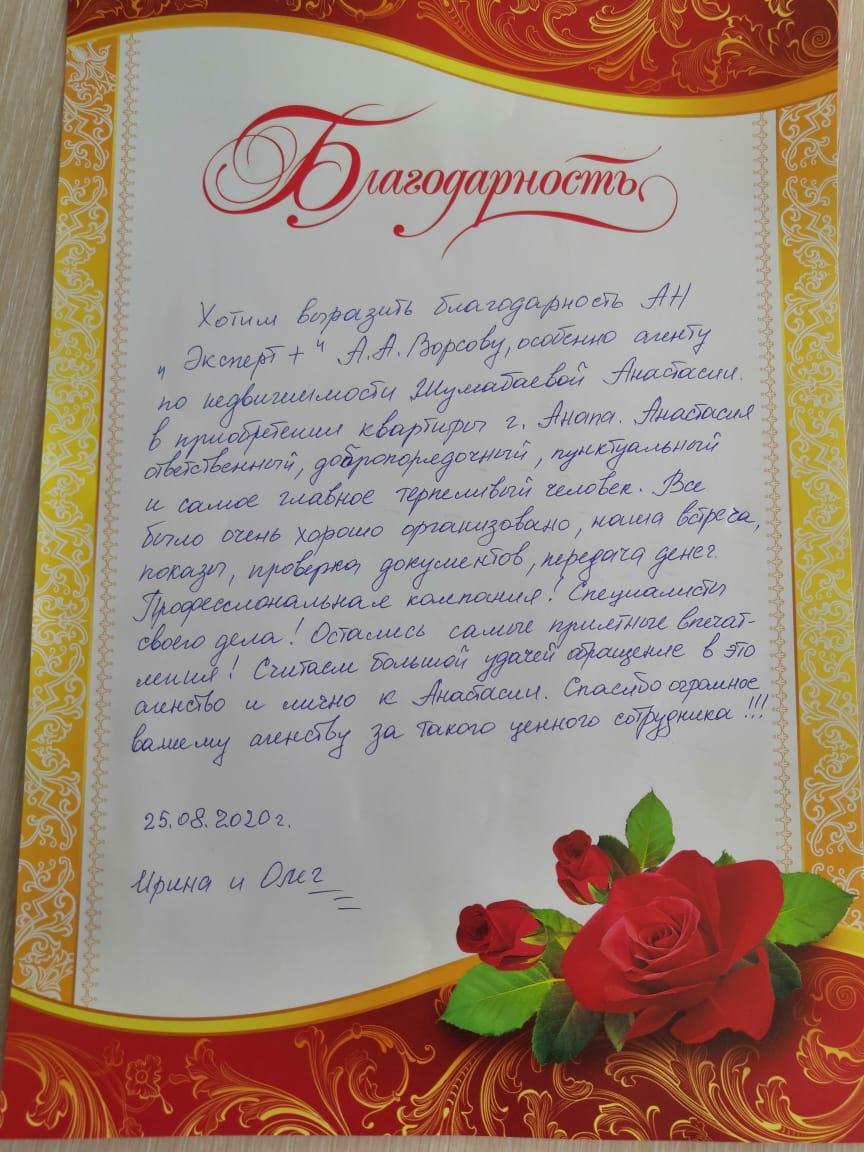 Благодарность
Хотим выразить благодарность АН
„ Эксперт+ " А.А. Ворсову, особенно агенту
по недвижимости Жумабаевой Анастасии.
в приобретении квартиры г. Анапа. Анастасия
ответственный, добропорядочный, пунктуальный
и самое главное терпеливый человек. Все
было очень хорошо организовано, наша встреча,
показы, проверка документов, передача денег.
Профессиональная компания! Специалисты
своего дела! Остались самые приятные впечат-
ления! Считаем большой удачей обращение в это
агенство и лично к Анастасии. Спасибо огромное
вашему агенству за такого ценного сотрудника!!!
25.08.2020г.
Ирина и Олег